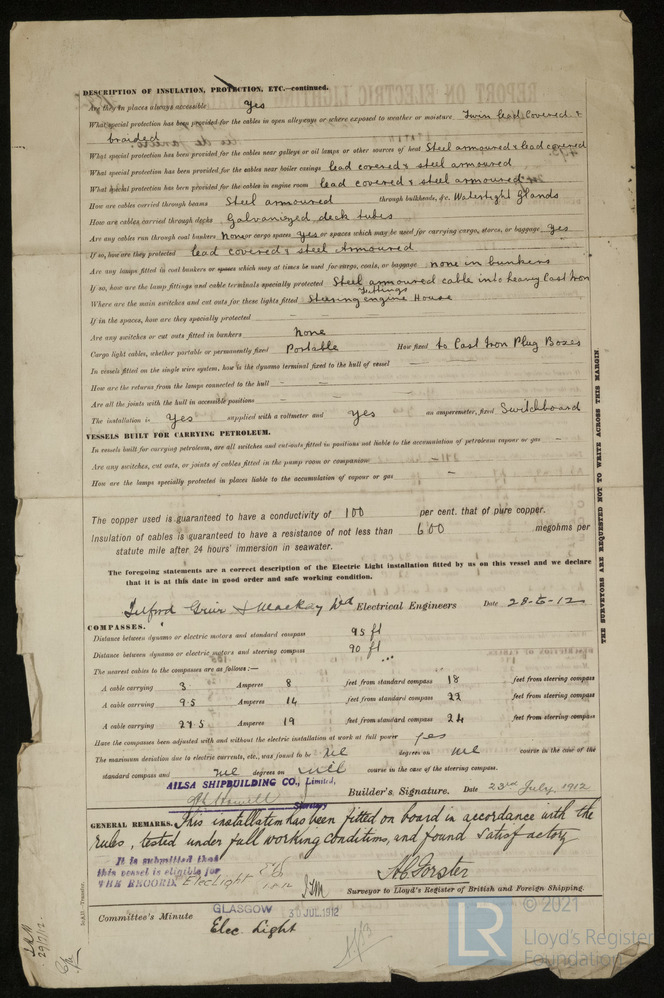 DESCRIPTION OF INSULATION, PROTECTION, ETC.—continued.
Are they in places always accessible Yes
What special protection has been provided for the cables in open alleyways or where exposed to weather or moisture Twin lead covered &
braided
What special protection has been provided for the cables near galleys or oil lamps or other sources of heat Steel armoured & lead covered
What special protection has been provided for the cables near boiler casings lead covered & steel armoured
What special protection has been provided for the cables in engine room lead covered & steel armoured
How are cables carried through beams Steel armoured through bulkheads, &c. Watertight Glands
How are cables carried through decks Galvanized deck tubes
Are any cables run through coal bunkers None or cargo spaces yes or spaces which may be used for carrying cargo, stores, or baggage yes
If so, how are they protected lead covered & steel Armoured
Are any lamps fitted in coal bunkers or spaces which may at times be used for cargo, coals, or baggage none in bunkers
If so, how are the lamp fittings and cable terminals specially protected Steel armoured cable into heavy Cast Iron
fittings
Where are the main switches and cut outs for these lights fitted Steering engine House
If in the spaces, how are they specially protected —
Are any switches or cut outs fitted in bunkers None
Cargo light cables, whether portable or permanently fixed Portable How fixed to Cast Iron Plug Boxes
In vessels fitted on the single wire system, how is the dynamo terminal fixed to the hull of vessel —
How are the returns from the lamps connected to the hull — —
Are all the joints with the hull in accessible positions — —
The installation is Yes supplied with a voltmeter and yes an amperemeter, fixed Switchboard
VESSELS BUILT FOR CARRYING PETROLEUM.
In vessels built for carrying petroleum, are all switches and cut-outs fitted in positions not liable to the accumulation of petroleum vapour or gas —
Are any switches, cut outs, or joints of cables fitted in the pump room or companion —
How are the lamps specially protected in places liable to the accumulation of vapour or gas —
The copper used is guaranteed to have a conductivity of 100 per cent. that of pure copper.
Insulation of cables is guaranteed to have a resistance of not less than 600 megohms per
statute mile after 24 hours' immersion in seawater.
The foregoing statements are a correct description of the Electric Light installation fitted by us on this vessel and we declare
that it is at this date in good order and safe working condition.
Telford Grier & Mackay Ltd Electrical Engineers Date 28-5-12
COMPASSES.
Distance between dynamo or electric motors and standard compass 95 ft
Distance between dynamo or electric motors and steering compass 90 ft
The nearest cables to the compasses are as follows:—
A cable carrying 3 Amperes 8 feet from standard compass 18 feet from steering compass
A cable carrying 9.5 Amperes 14 feet from standard compass 22 feet from steering compass
A cable carrying 27.5 Amperes 19 feet from standard compass 24 feet from steering compass
Have the compasses been adjusted with and without the electric installation at work at full power yes
The maximum deviation due to electric currents, etc., was found to be nil degrees on nil course in the case of the
standard compass and nil degrees on nil course in the case of the steering compass.
AILSA SHIPBUILDING CO., Limited,
Builder's Signature. Date 23rd July 1912
GENERAL REMARKS. This installation has been fitted on board in accordance with the
rules, tested under full working conditions, and found satisfactory
It is submitted that
this vessel is eligible for
THE RECORD. Elec Light
A C Forster
Surveyor to Lloyd's Register of British and Foreign Shipping.
Committee's Minute GLASGOW 30 JUL 1912
Elec. Light
THE SURVEYORS ARE REQUESTED NOT TO WRITE ACROSS THIS MARGIN.
29/7/12
© 2021
LR Lloyd's Register
Foundation